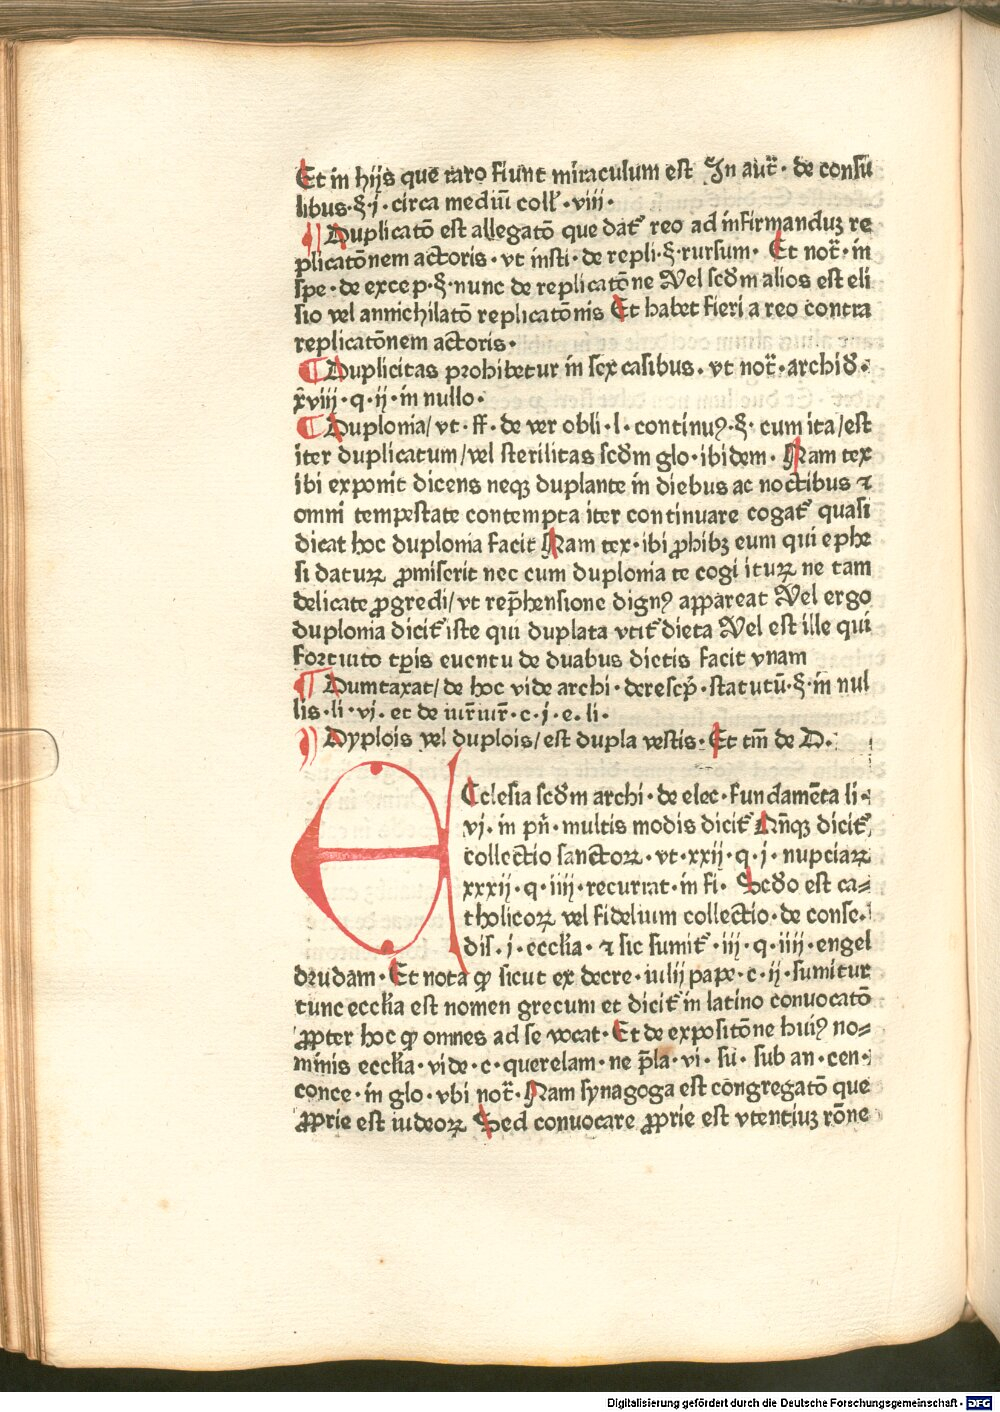 Et in hijs que raro fiunt miraculum est In aut̄r · de consu
libus · § · j · circa mediū coll̄ · viii ·
¶ Duplicatō est allegatō que dat᷑ reo ad infirmanduꝫ re
plicatōnem actoris · vt insti · de repli · § · rursum · Et not̄r · in
spe · de excep · § · nunc de replicatōne Vel scd̄m alios est eli
sio vel annichilatō replicatōnis Et habet fieri a reo contra
replicatōnem actoris ·
¶ Duplicitas prohibetur in sex casibus · vt not̄r · archid̄ ·
x̄viii · q · ij · in nullo ·
¶ Duplonia/ vt · ff · de ver obli · l · continuꝰ · § · cum ita/ est
iter duplicatum/ vel sterilitas scd̄m glo · ibidem · Nam tex
ibi exponit dicens neqꝫ duplante in diebus ac noctibus ⁊
omni tempestate contempta iter continuare cogat᷑ quasi
dicat hoc duplonia facit Nam tex · ibi ꝓhibꝫ eum qui ephe
si daturꝝ ꝓmiserit nec cum duplonia te cogi iturꝝ ne tam
delicate ꝓgredi/ vt rep̄hensione dignꝰ appareat Vel ergo
duplonia dicit᷑ iste qui duplata vtit᷑ dieta Vel est ille qui
fortuito tp̄is euentu de duabus dietis facit vnam
¶ Dumtaxat/ de hoc vide archi · derescp̄ · statutū · § · in nul
lis · li · vj · et de iur̄iur̄ · c · j · e · li ·
¶ Dyplois vel duplois/ est dupla vestis · Et tm̄ de D ·
Ecclesia scd̄m archi · de elec · fundamēta li ·
vj · in pn̄ · multis modis dicit᷑ Nn̄qꝫ dicit᷑
collectio sanctoꝝ · vt · xxij · q · j · nupciaꝝ
xxxij · q · iiij · recurrat · in fi · Scd̄o est ca⸗
tholicoꝝ vel fidelium collectio · de conse ·
dis · j · eccl̄ia · ⁊ sic sumit᷑ · iij · q · iiij · engel
drudam · Et nota qꝫ sicut ex decre · iulij pape · c · ij · sumitur
tunc eccl̄ia est nomen grecum et dicit᷑ in latino conuocatō
ꝓpter hoc qꝫ omnes ad se vocat · Et de expositōne huiꝰ no⸗
minis eccl̄ia · vide · c · querelam · ne p̄la · vi · su · sub an · cen ·
conce · in glo · vbi not̄r · Nam synagoga est cōngregatō que
ꝓprie est iudeoꝝ Sed conuocare ꝓprie est vtentiuꝫ rōne
Digitalisierung gefördert durch die Deutsche Forschungsgemeinschaft · DFG